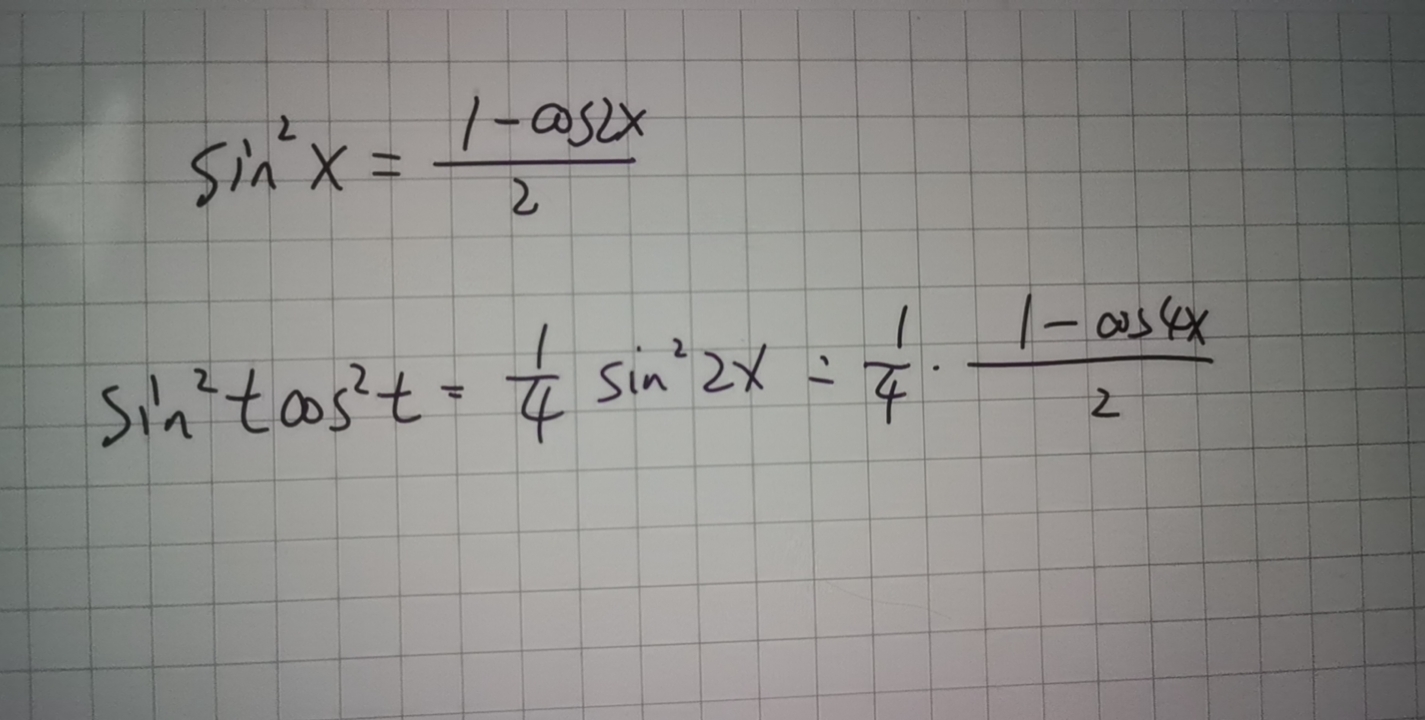 sin²x = (1-cos2x)/2
sin²t cos²t = 1/4 sin²2x = 1/4 · (1-cos4x)/2